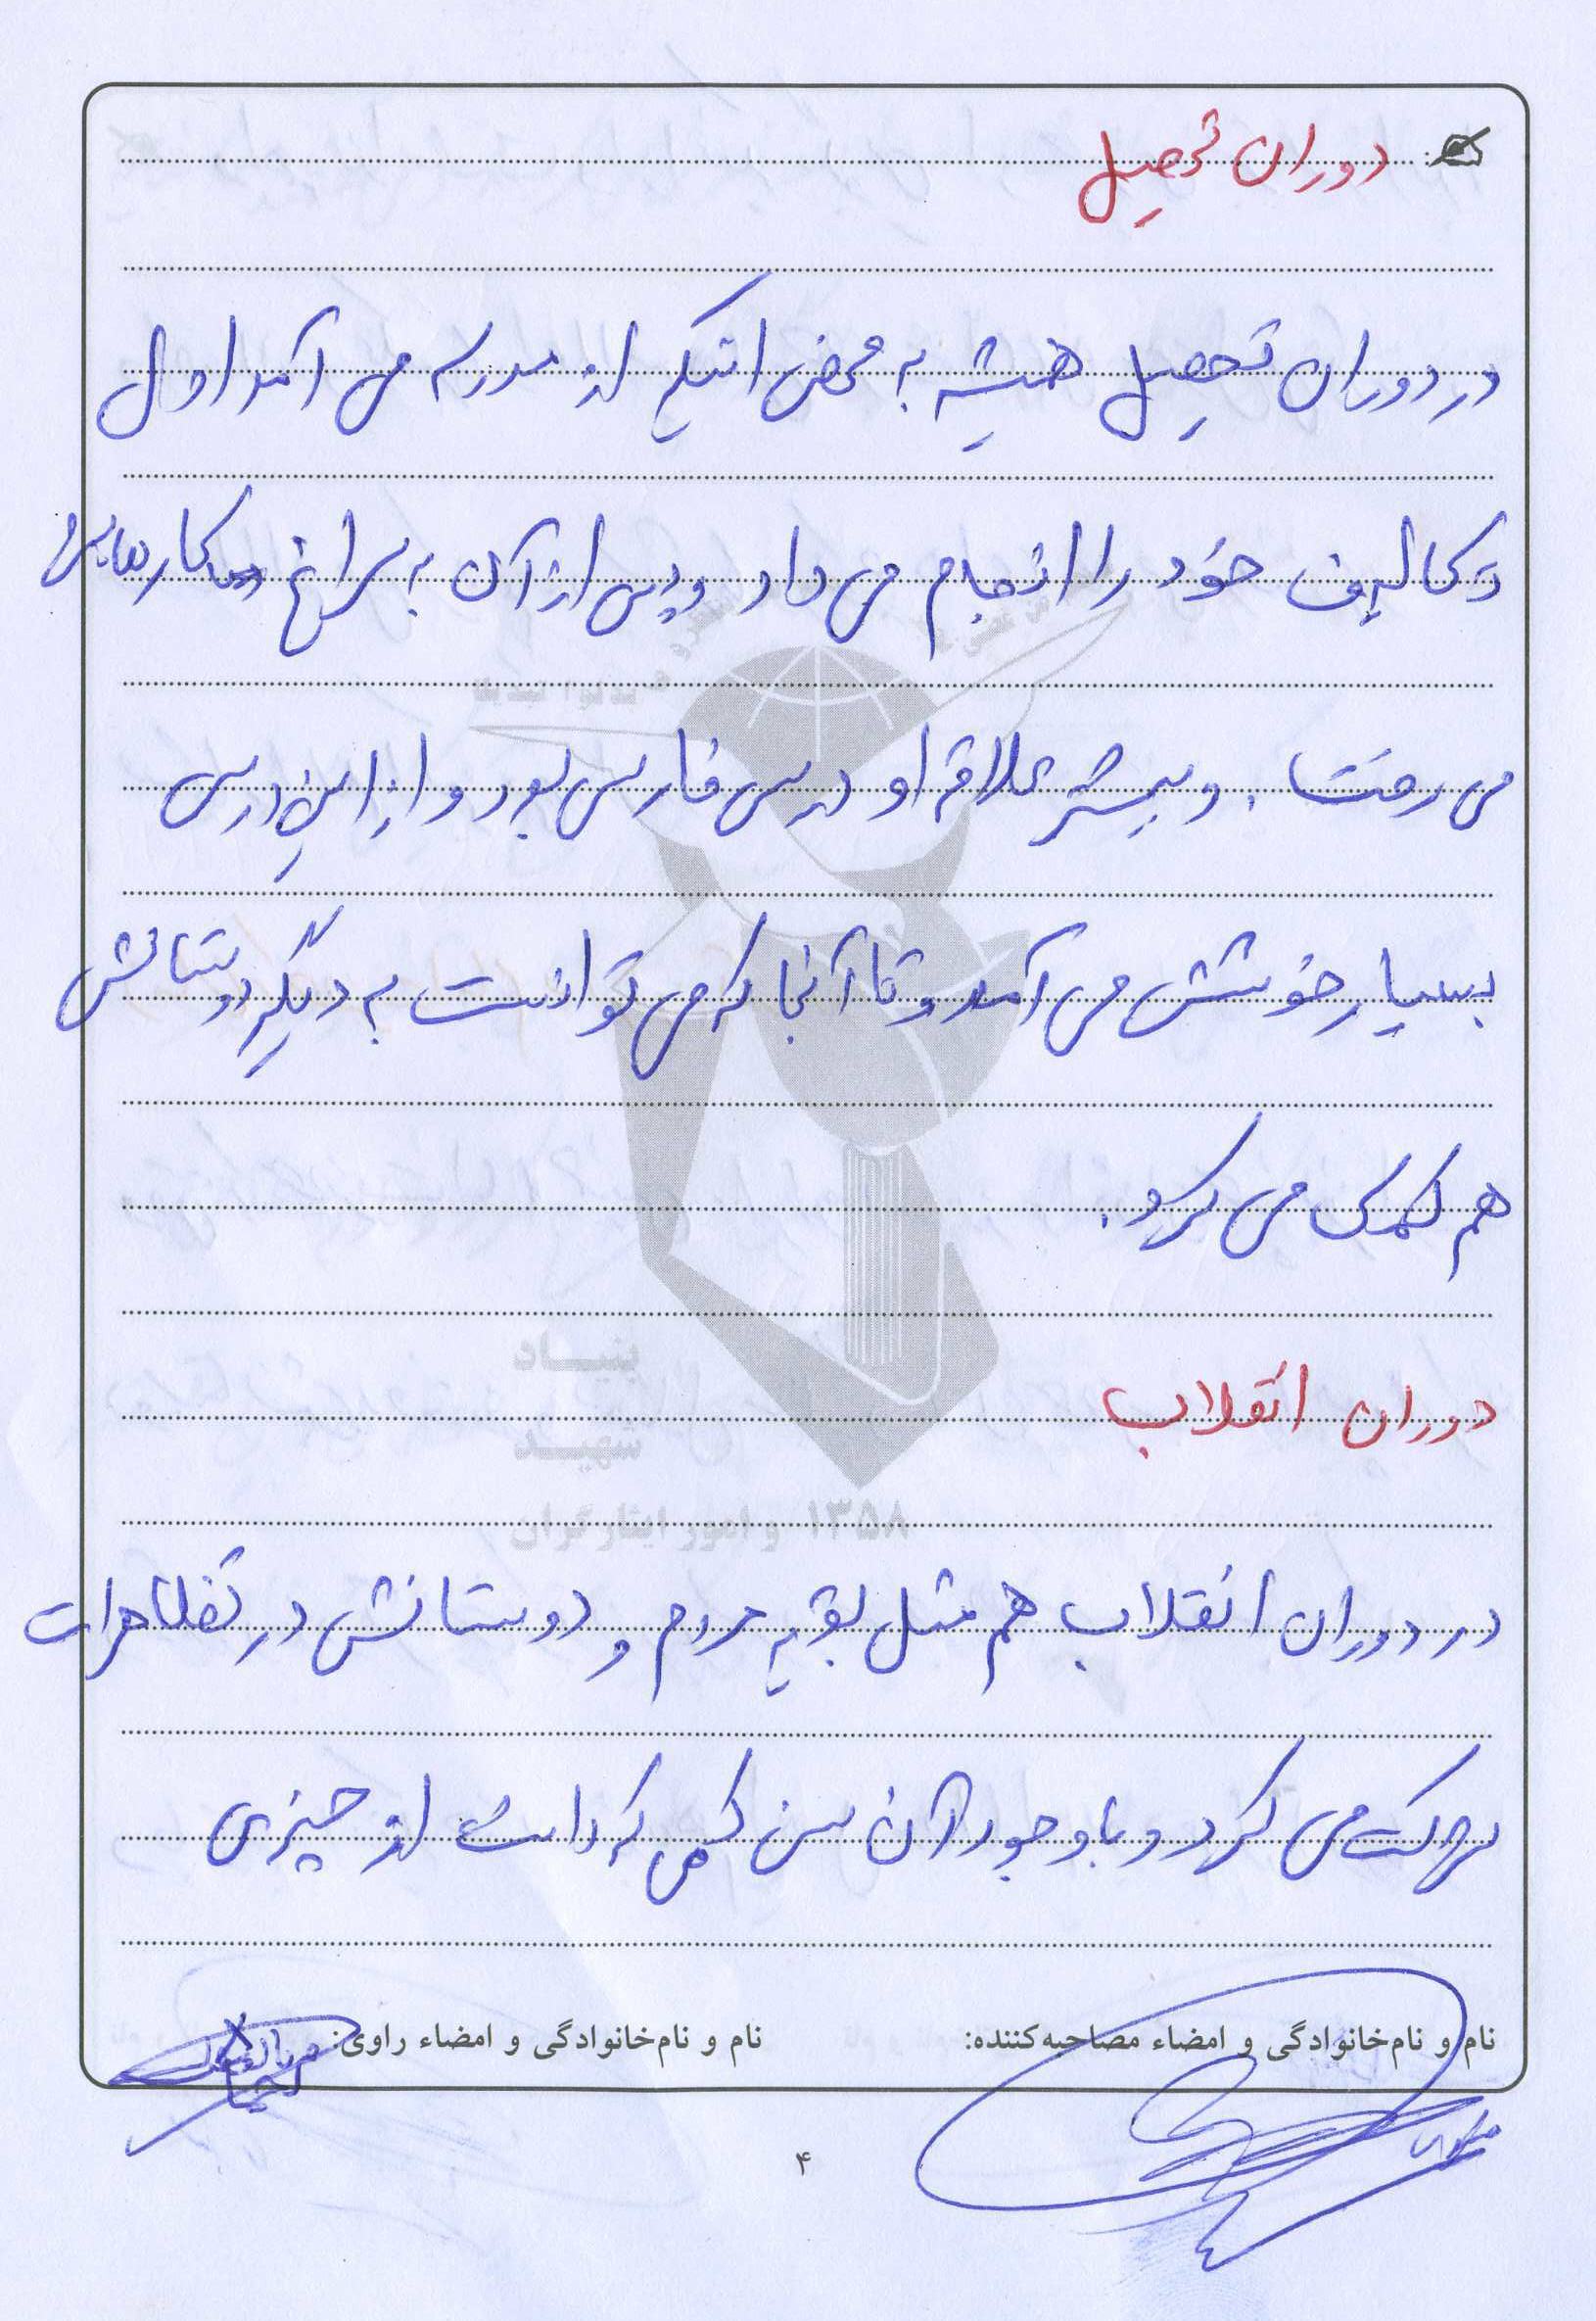 دوران تحصیل
در دوران تحصیل همیشه به محض اینکه از مدرسه می آمد اول
تکالیف خود را انجام می داد و پس از آن به سراغ کارهایش
می رفت. و بیشتر علاقه او درس فارسی بود و از این درس
بسیار خوشش می آمد و تا آنجا که می توانست به دیگر دوستانش
هم کمک می کرد.
دوران انقلاب
در دوران انقلاب هم مثل بقیه مردم و دوستانش در تظاهرات
شرکت می کرد و با وجود آن سن کمی که داشت از چیزی
بنیاد
شهید
و امور ایثارگران ۱۳۵۸
نام و نام‌خانوادگی و امضاء مصاحبه‌کننده:
نام و نام‌خانوادگی و امضاء راوی:
۴